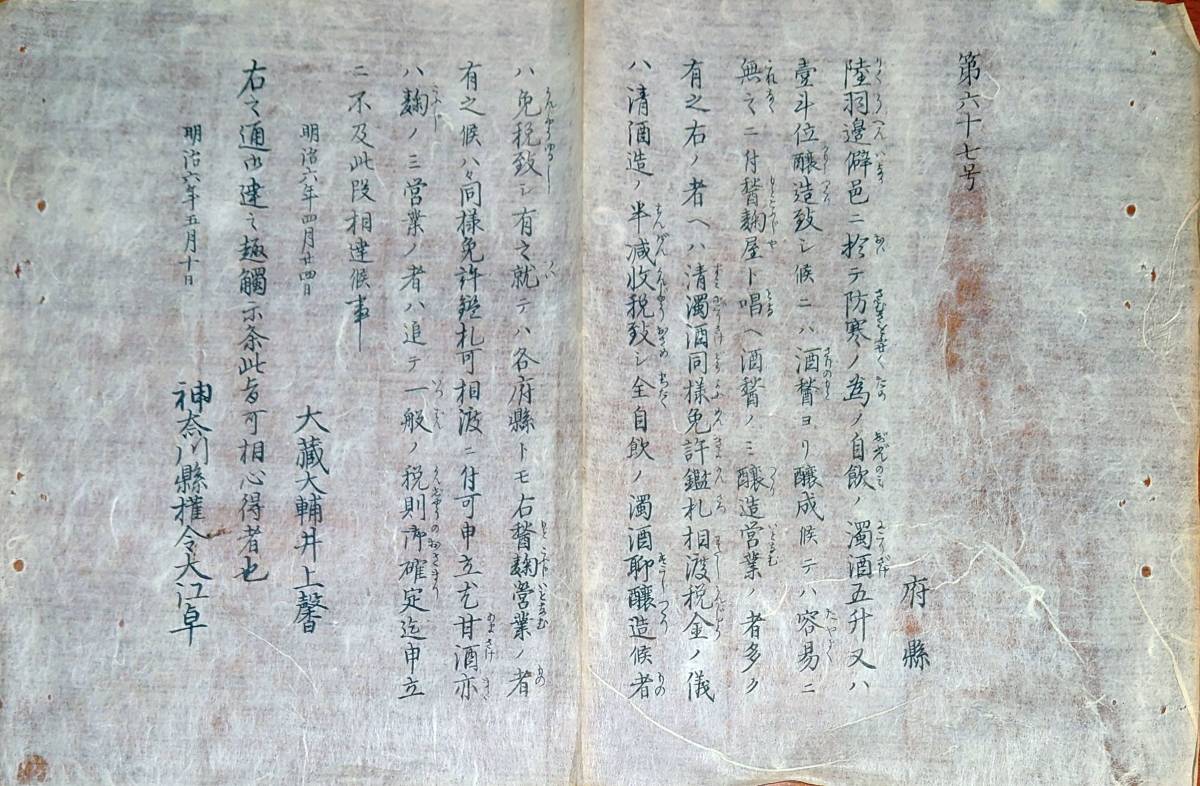 第六十七号
府縣
陸羽邊僻邑ニ於テ防寒ノ為ノ自飲ノ濁酒五升又ハ
壹斗位釀造致シ候ニハ酒醔ヨリ釀成候テハ容易ニ
無之ニ付醔麹屋ト唱ヘ酒醔ノミ釀造営業ノ者多ク
有之右ノ者ヘハ清濁酒同様免許鑑札相渡税金ノ儀
ハ清酒造ノ半減收税致シ全自飲ノ濁酒聊釀造候者
ハ免税致シ有之就テハ各府縣トモ右醔麹営業ノ者
有之候ハヽ同様免許鑑札可相渡ニ付可申立尤甘酒亦
ハ麹ノミ営業ノ者ハ追テ一般ノ税則御確定迄申立
ニ不及此段相達候事
明治六年四月廿四日
大藏大輔井上馨
右之通御達之趣觸示条此旨可相心得者也
明治六年五月十日
神奈川縣權令大江卓